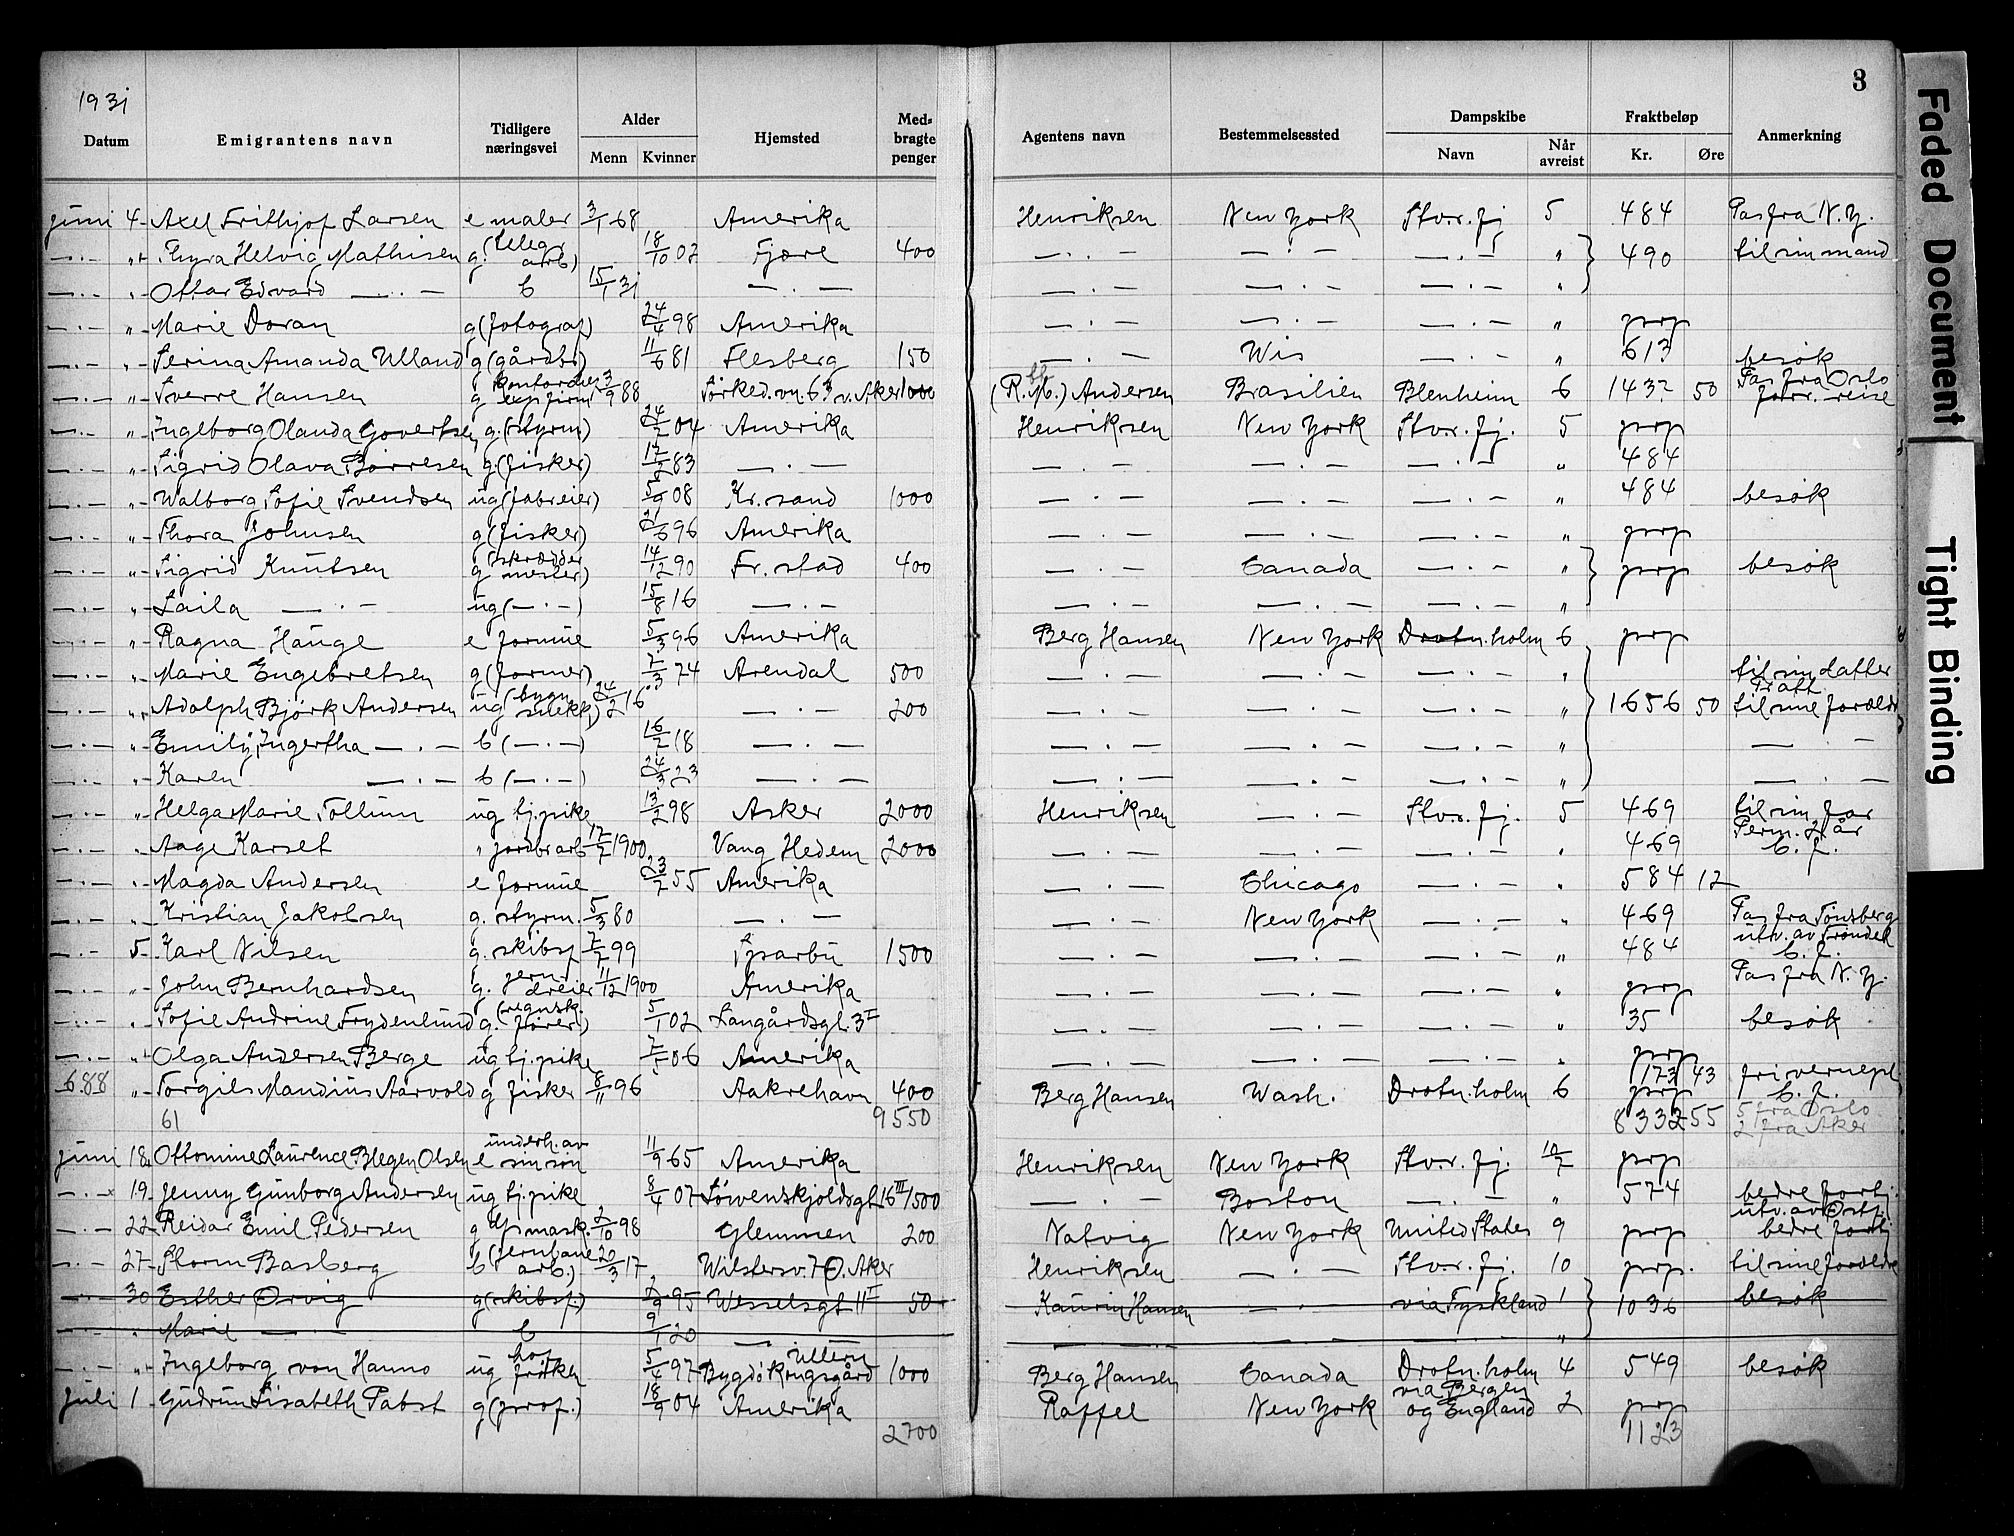 1931
3
Datum Emigrantens navn Tidligere næringsvei Alder Menn Kvinner Hjemsted Med-bragte penger Agentens navn Bestemmelsessted Dampskibe Navn Når avreist Fraktbeløp Kr. Øre Anmerkning
juni 4 Axel Frithjof Larsen e maler 3/1 68 Amerika Henriksen New York Stv.r. fj 5 484 Pas fra N.Y.
—·— " Thyra Helvig Mathisen g. (telegr arb) 18/10 02 Fjære 400 —·— —·— —·— " 490 til sin mand
—·— " Ottar Edvard —·— b 15/1 31 —·— —·— —·— —·— "
—·— " Marie Doran g (fotograf) 24/4 98 Amerika —·— —·— —·— " prp
—·— " Serina Amanda Ulland g (gårdbr) 11/6 81 Flesberg 150 —·— Wis —·— " 613 besøk
—·— " Sverre Hansen g 3/9 88 Sørked.vn. 63 v. Aker 1000 Andersen Brasilien Blenheim 6 1432 50 Pas fra Oslo forr. reise
—·— " Ingeborg Olanda Govertsen g. (styrm) 24/2 04 Amerika Henriksen New York Stv.r. fj. 5 prp
—·— " Sigrid Olava Børresen g. (fisker) 17/2 83 —·— —·— —·— —·— " 484
—·— " Walborg Sofie Svendsen ug (fabreier) 5/9 08 Kr. sand 1000 —·— —·— —·— " 484 besøk
—·— " Thora Johnsen g (fisker) 21/6 96 Amerika —·— —·— —·— " prp
—·— " Sigrid Knutsen g (skrædder mester) 14/12 90 Fr. stad 400 —·— Canada —·— " prp besøk
—·— " Laila —·— ug (—·—) 15/8 16 —·— —·— —·— —·— "
—·— " Ragna Hauge e formue 5/3 96 Amerika Berg Hansen New York Drotn.holm 6 prp
—·— " Marie Engebretsen g (former) 7/3 74 Arendal 500 —·— —·— —·— " til sin datter
—·— " Adolph Bjørk Andersen ug (bygn snekk) 24/2 16 —·— 200 —·— —·— —·— " 1656 50 til sine forældr
—·— " Emily Ingertha —·— b (—·—) 16/2 18 —·— —·— —·— —·— " —·—
—·— " Karen —·— b (—·—) 24/3 23 —·— —·— —·— —·— " —·—
—·— " Helga Marie Tollum ug tj.pike 13/2 98 Asker 2000 Henriksen —·— Stv.r. fj. 5 469 til sin far
—·— " Aage Karset " jordbr arb 17/7 1900 Vang Hedem 2000 —·— —·— —·— " 469 Perm. 2 år
—·— " Magda Andersen e formue 23/2 55 Amerika —·— Chicago —·— " 584 12
—·— " Kristian Jakobsen g. styrm. 5/3 80 —·— —·— New York —·— " 469 Pas fra Tønsberg
—·— 5 Karl Nilsen g. skibsf 7/2 99 1500 —·— —·— —·— " 484 utv. av Trøndel
—·— " John Bernhardsen g. jern dreier 11/12 1900 Amerika —·— —·— —·— " prp Pas fra N.Y.
—·— " Sofie Andrine Frydenlund g. (regnsk. fører) 5/1 02 Langårdsgt. 3 I —·— —·— —·— " 35 besøk
—·— " Olga Andersen Berge ug tj.pike 7/5 06 Amerika —·— —·— —·— " prp
6.88 " Torgils Mandius Aarvold g fisker 8/11 96 Aakrehavn 400 Berg Hansen Wash. Drotn.holm 6 173 43 prp fri vernepl
61 9550 8332 55 5 fra Oslo 2 fra Aker
juni 18 Ottomine Laurence Blegen Olsen e underh. av sin søn 11/9 65 Amerika Henriksen New York Stv.r. fj. 10/7 prp
—·— 19 Jenny Gunborg Andersen ug tj.pike 8/4 07 Løvenskjoldsgt 16 III 1500 —·— Boston —·— " 574 bedre fortj.
—·— 22 Reidar Emil Pedersen g mask. 2/10 98 Glemmen 200 Natvig New York United States 9 prp utv. av Østf. bedre fortj
—·— 27 Storm Basberg b (jernbane arb) 20/3 17 Wilstersv. 7 Ø. Aker Henriksen —·— Stv.r. fj. 10 prp. til sine forældre
—·— 30 Esther Ørvig g (skibsf.) 7/9 95 Wesselsgt 11 I 50 Kaurin Hansen —·— via Tyskland 1 1036 besøk
—·— " Marie —·— b 9/1 20 —·— —·— —·— "
—·— " Ingeborg von Hanno ug hof frøken 5/4 97 Bygdø Kongsgård Ullern 1000 Berg Hansen Canada Drotn.holm 4 549 besøk
juli 1 Gudrun Lisabeth Pabst g (prof.) 18/9 04 Amerika Raffel New York via Bergen og England 2 prp
2700 1123
Faded Document
Tight Binding